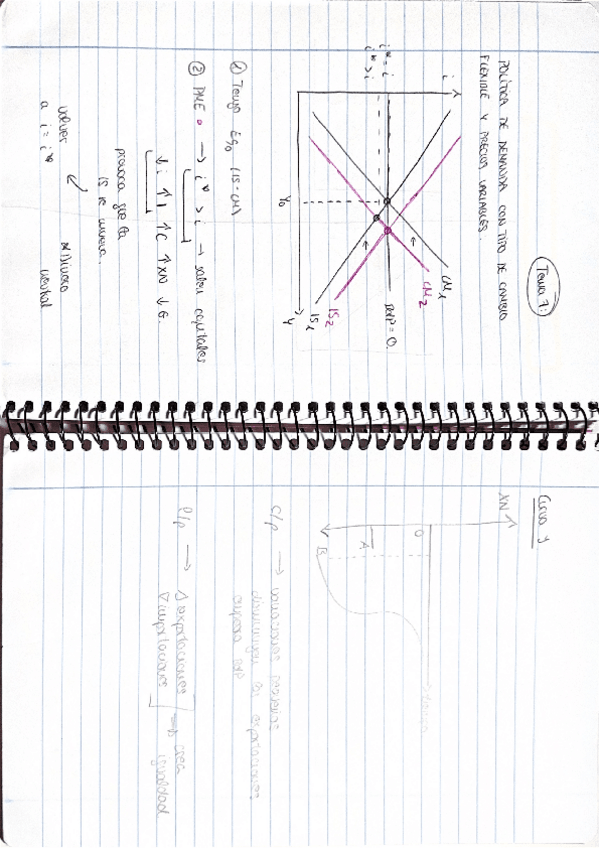 Tema 7:
POLÍTICA DE DEMANDA CON TIPO DE CAMBIO
FLEXIBLE Y PRECIOS VARIABLES.
i
i* = i
i* > i
LM1
LM2
BP = 0.
IS2
IS1
Y0
Y
① Tengo Eq0 (IS-LM)
② PME → i* > i → salen capitales
↓i ↑I ↑C ↑XN ↓e.
provoca que la
IS se mueva.
volver
a i = i*
* Dinero
neutral
Curva J
XN
O
A
B
tiempo
c/p → variaciones
disminuyen las exportaciones
l/p → △ exportaciones
▽ importaciones
⇒ crea
igualdad